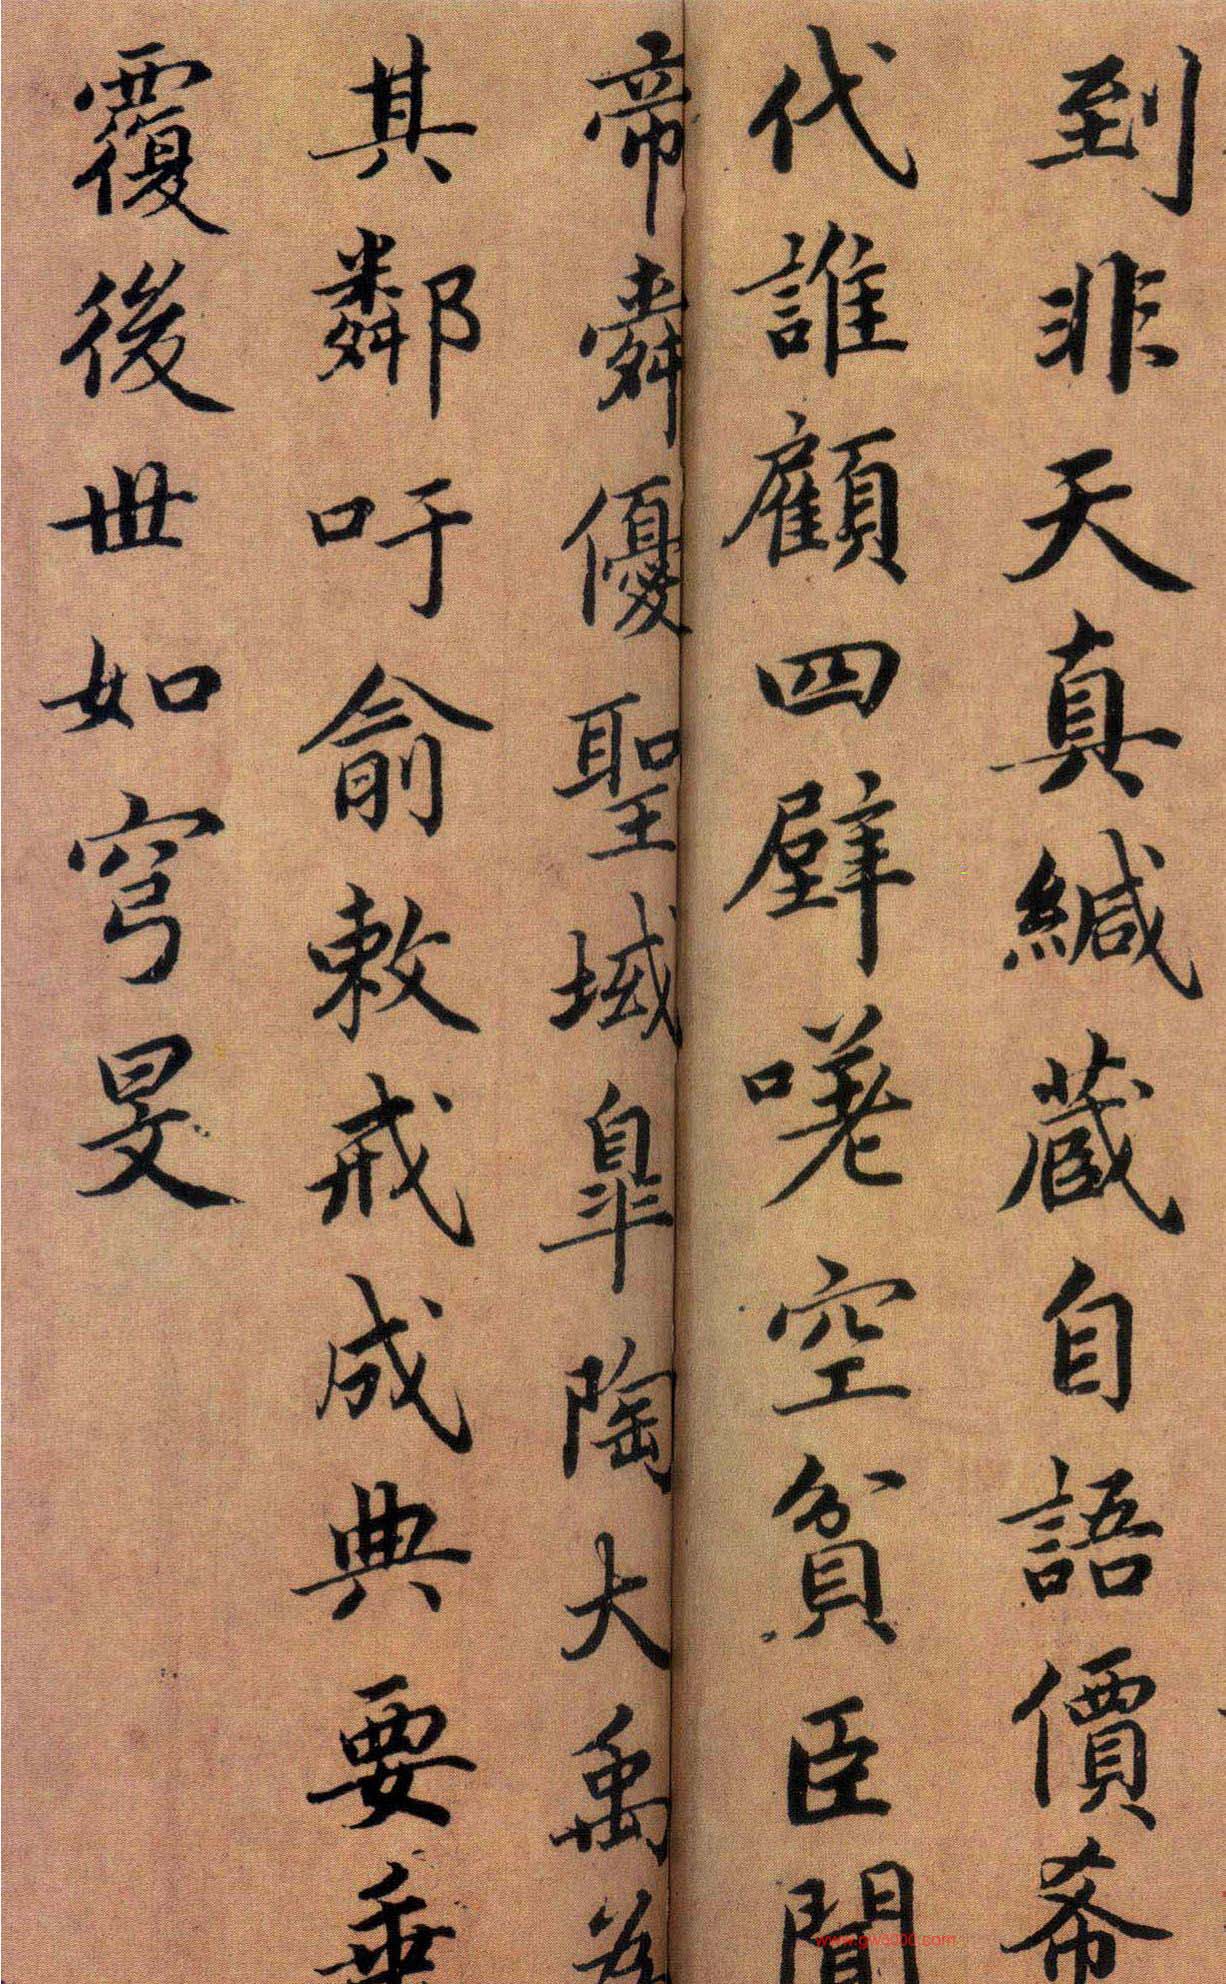 到非天真緘蔵自語價希
代誰顧四壁嘆空貧臣聞
帝舜優聖域皐陶大禹為
其鄰吁俞敕戒成典要垂
覆後世如穹旻
www.gw5000.com